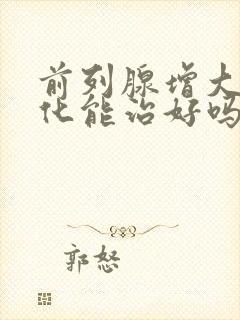 前列腺增大
化能治好吗
郭怒